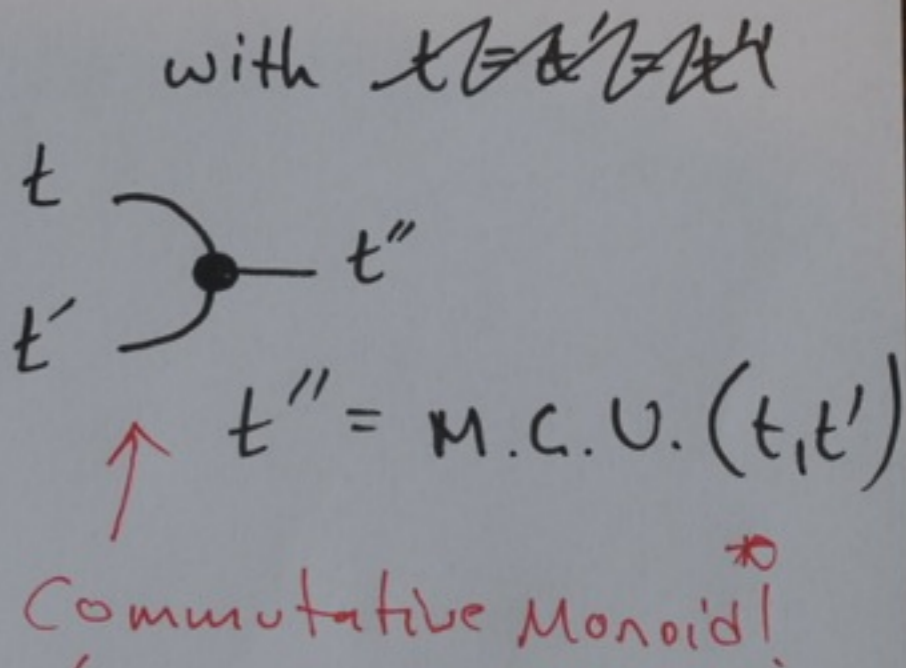 with t=t'=t''
t
t''
t'
t'' = M.G.U. (t,t')
*
Commutative Monoid!